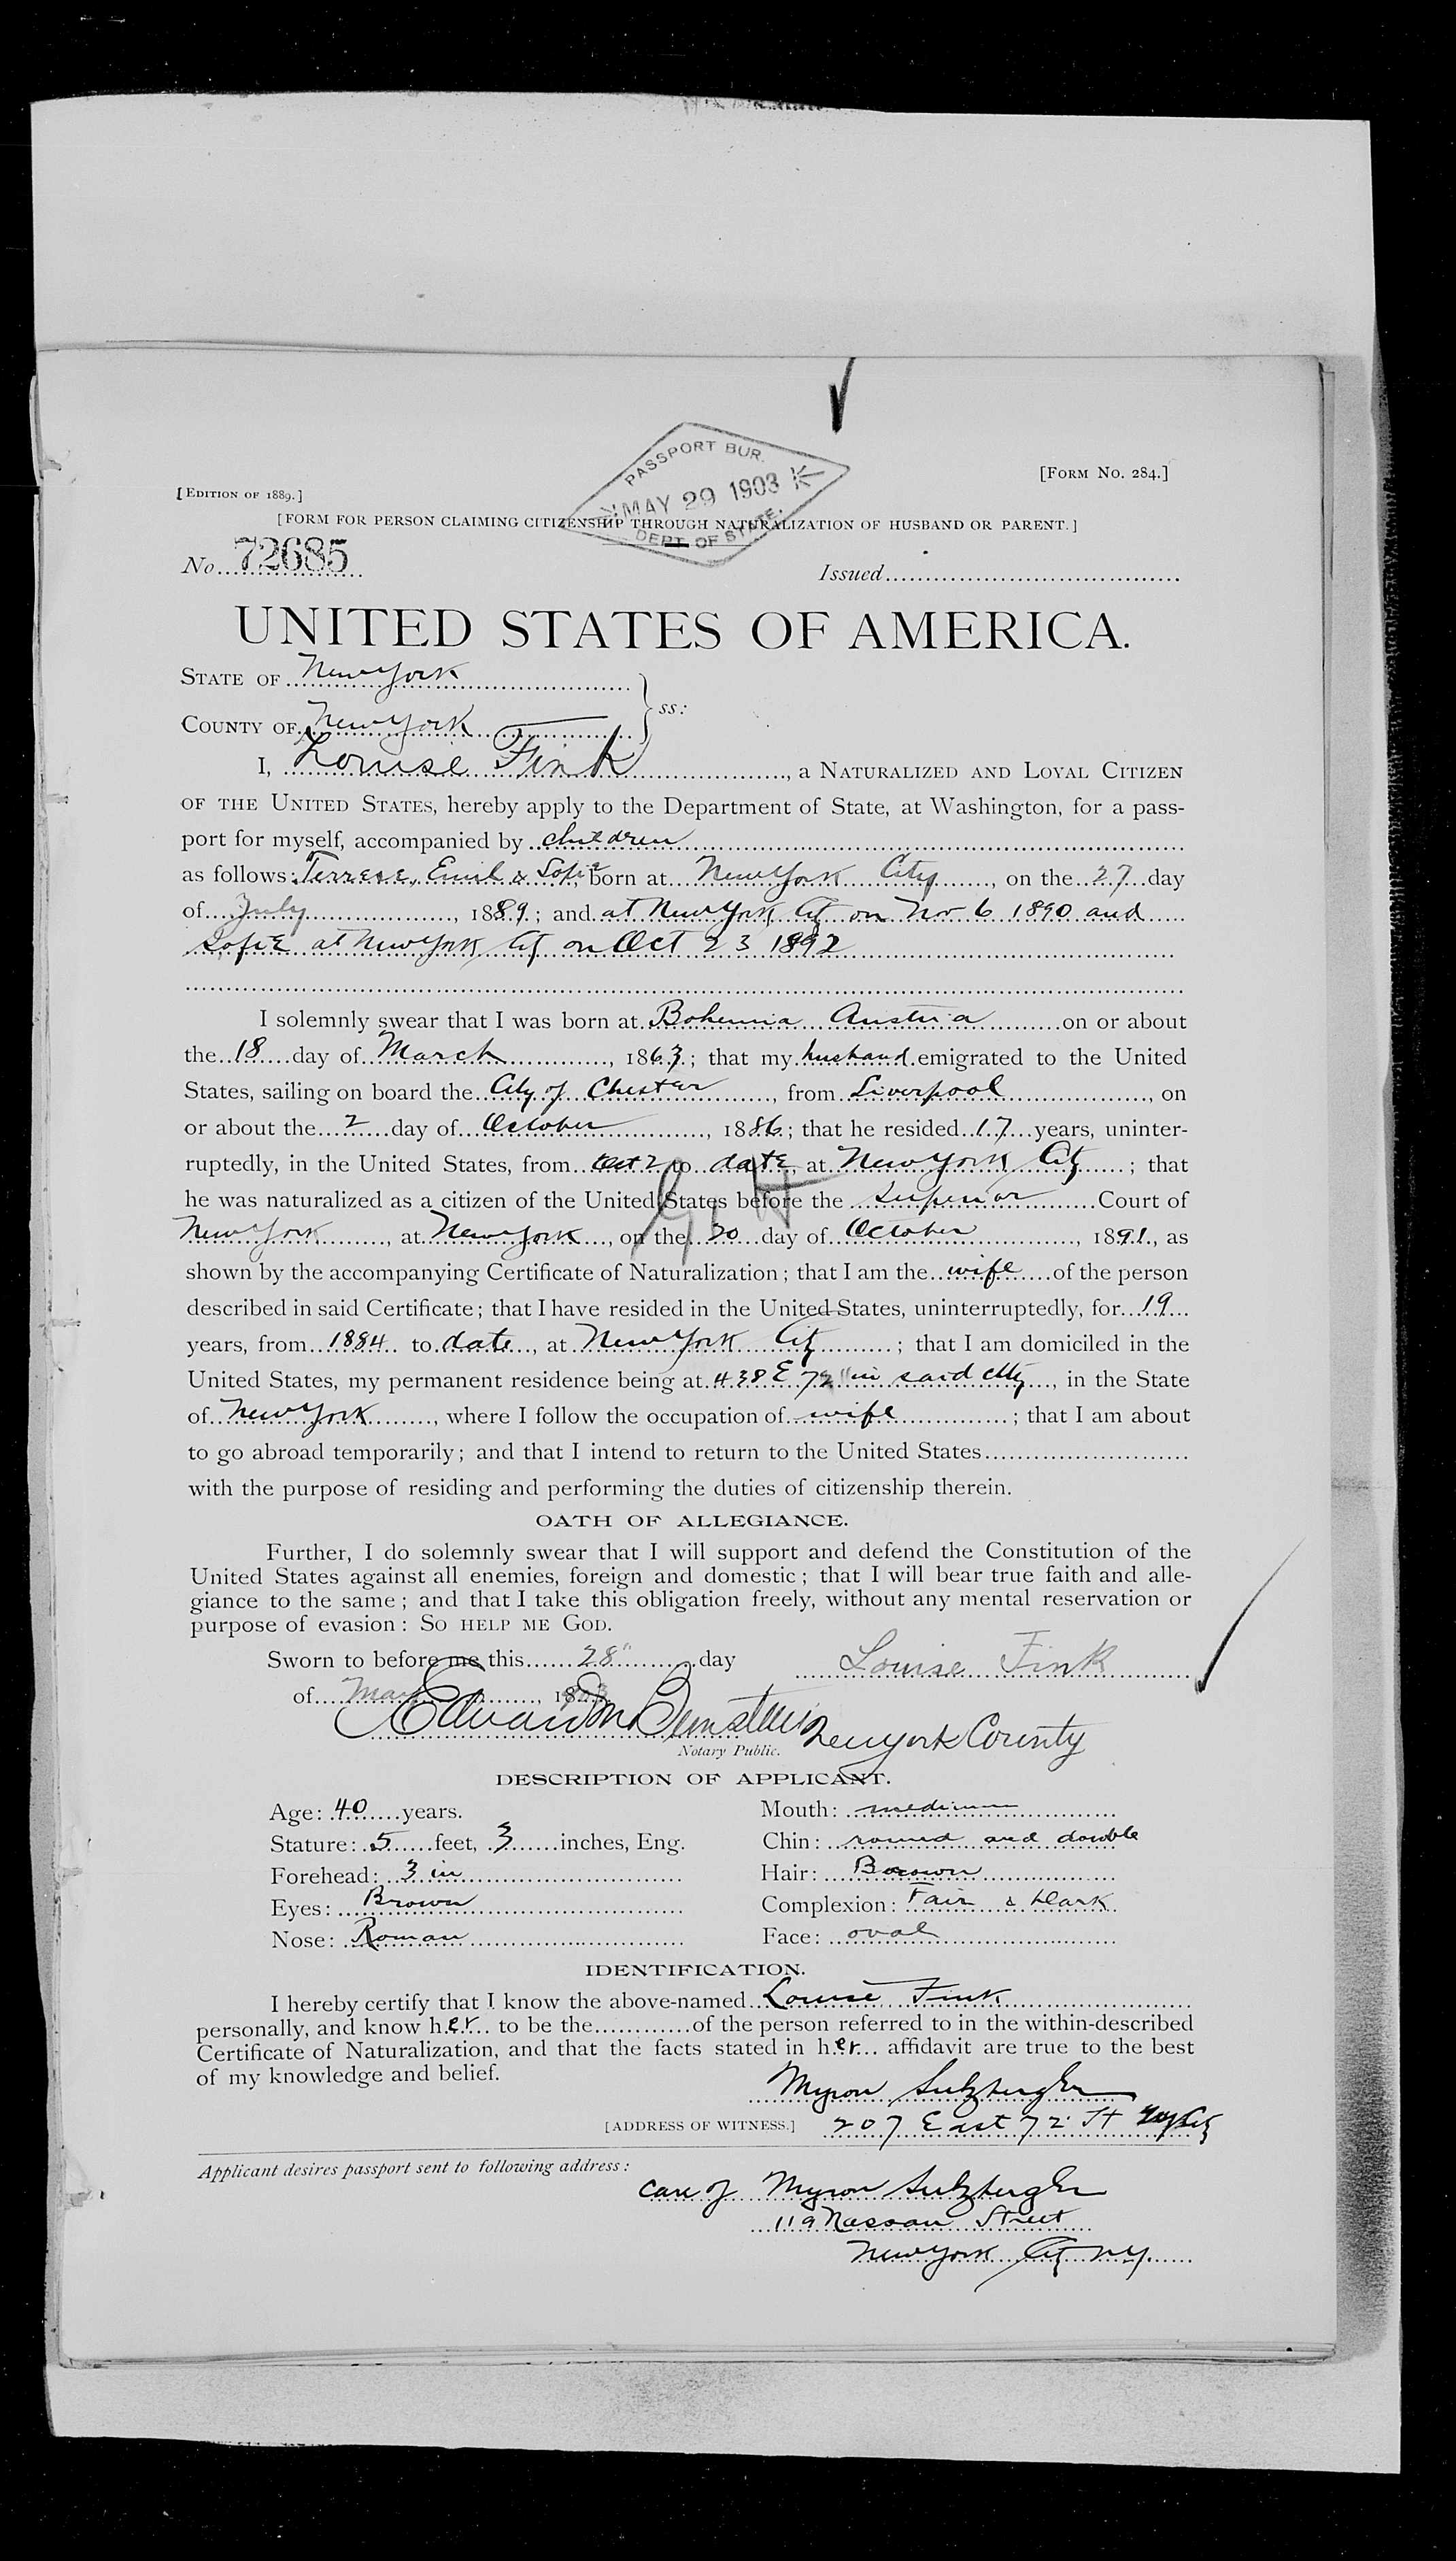 PASSPORT BUR.
MAY 29 1903
DEPT. OF STATE.
[FORM No. 284.]
[EDITION OF 1889.]
[FORM FOR PERSON CLAIMING CITIZENSHIP THROUGH NATURALIZATION OF HUSBAND OR PARENT.]
No. 72685
Issued
UNITED STATES OF AMERICA.
STATE OF New York
COUNTY OF New York ss:
I, Louise Fink, a NATURALIZED AND LOYAL CITIZEN
OF THE UNITED STATES, hereby apply to the Department of State, at Washington, for a pass-
port for myself, accompanied by children
as follows: Terrese, Emil & Sofie, born at New York City, on the 27 day
of July, 1889; and at New York City on Nov 6 1890 and
Sofie at New York City on Oct 23 1892
I solemnly swear that I was born at Bohemia Austria on or about
the 18 day of March, 1863; that my husband emigrated to the United
States, sailing on board the City of Chester, from Liverpool, on
or about the 2 day of October, 1886; that he resided 17 years, uninter-
ruptedly, in the United States, from Oct 2 to date, at New York City; that
he was naturalized as a citizen of the United States before the Superior Court of
New York, at New York, on the 20 day of October, 1891, as
shown by the accompanying Certificate of Naturalization; that I am the wife of the person
described in said Certificate; that I have resided in the United States, uninterruptedly, for 19
years, from 1884 to date, at New York City; that I am domiciled in the
United States, my permanent residence being at 438 E 72" in said city, in the State
of New York, where I follow the occupation of wife; that I am about
to go abroad temporarily; and that I intend to return to the United States
with the purpose of residing and performing the duties of citizenship therein.
OATH OF ALLEGIANCE.
Further, I do solemnly swear that I will support and defend the Constitution of the
United States against all enemies, foreign and domestic; that I will bear true faith and alle-
giance to the same; and that I take this obligation freely, without any mental reservation or
purpose of evasion: SO HELP ME GOD.
Sworn to before me this 28" day
Louise Fink
of May, 1903
Edward M Bernstein New York County
Notary Public.
DESCRIPTION OF APPLICANT.
Age: 40 years.
Mouth: medium
Stature: 5 feet, 3 inches, Eng.
Chin: round and double
Forehead: 3 in
Hair: Brown
Eyes: Brown
Complexion: Fair & Dark
Nose: Roman
Face: oval
IDENTIFICATION.
I hereby certify that I know the above-named Louise Fink
personally, and know her to be the of the person referred to in the within-described
Certificate of Naturalization, and that the facts stated in her affidavit are true to the best
of my knowledge and belief.
Myron Sulzberger
[ADDRESS OF WITNESS.] 207 East 72 St NY City
Applicant desires passport sent to following address:
care of Myron Sulzberger
119 Nassau Street
New York City N.Y.